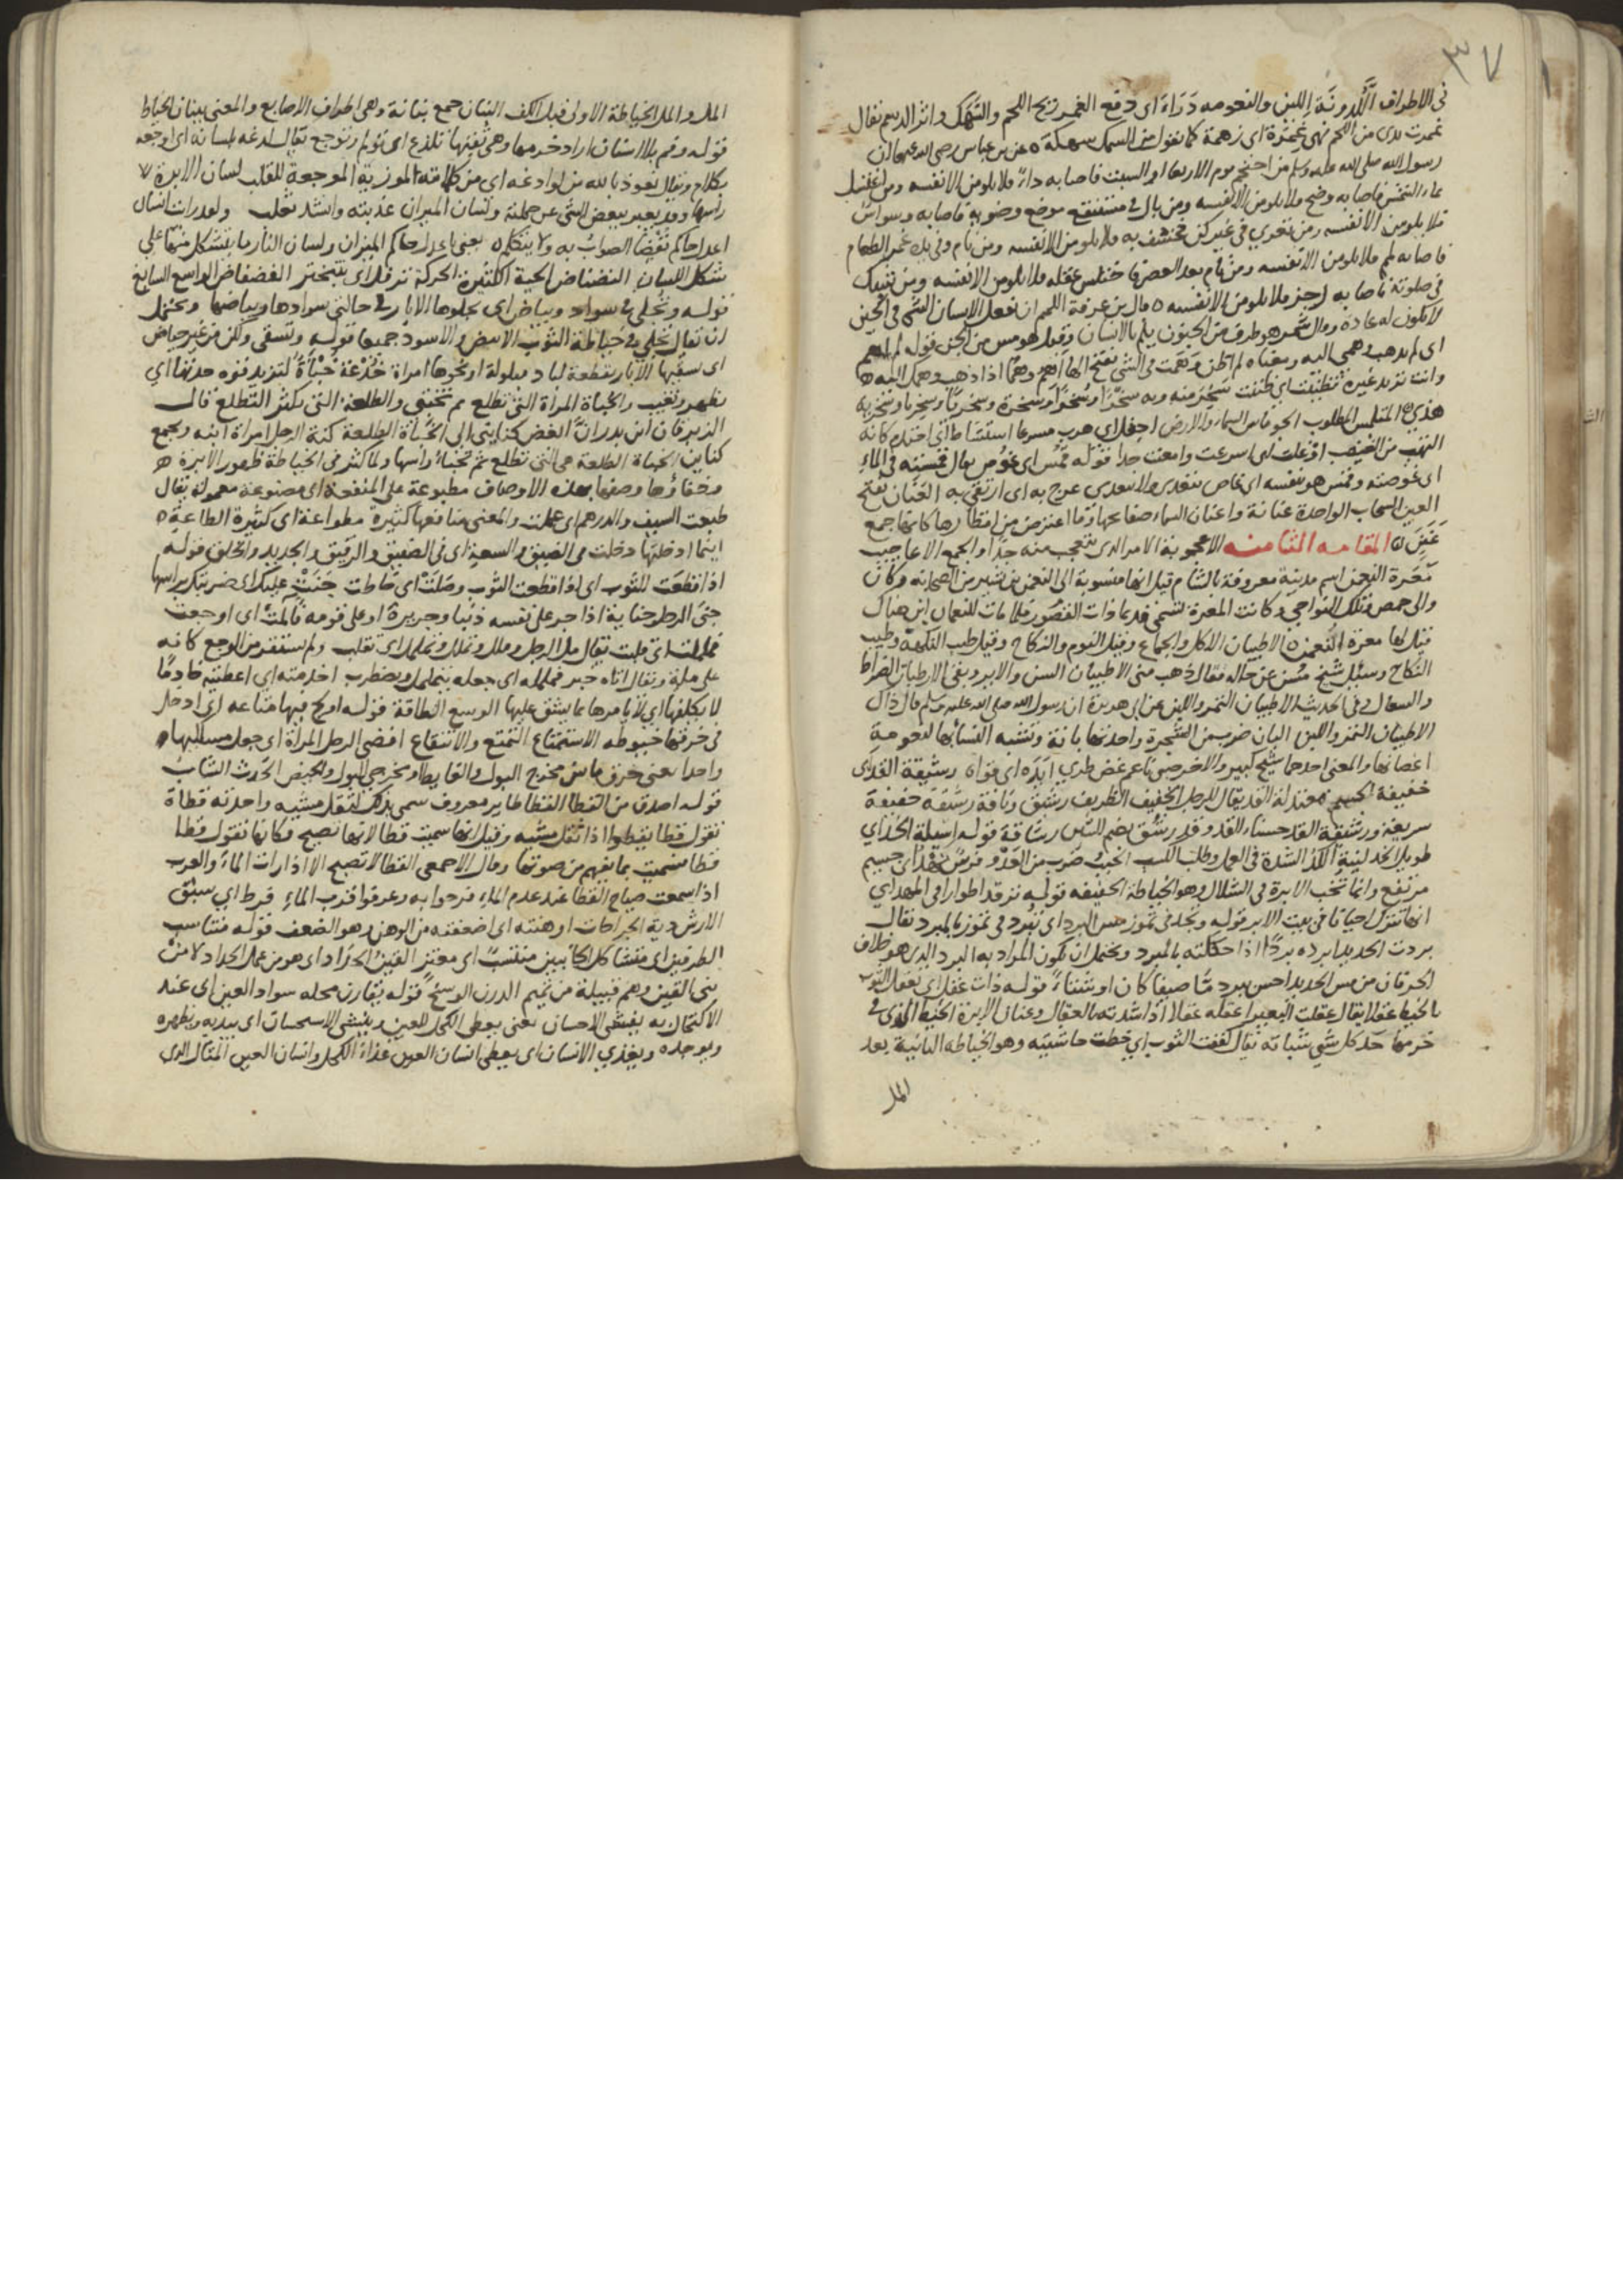 ٣٧
في الاطراف اللدونة اللين والنعومه دراة اى دفع الغمر ريح اللحم والسهك واثر الدسم يقال
غمرت يدى من اللحم فهى غمرة اى زهمة كما تقول من السمك سهكة ه عن بن عباس رضى الله عنهما ان
رسول الله صلى الله عليه وسلم من احتجم يوم الاربعا او السبت فاصابه داء فلا يلومن الا نفسه ومن اغتسل
بماء الشمس فاصابه وضح فلا يلومن الا نفسه ومن بال في مستنقع موضع وضويه فاصابه وسواس
فلا يلومن الا نفسه ومن تعرى في غير كن فخسف به فلا يلومن الا نفسه ومن نام وفي يده غمر الطعام
فاصابه لمم فلا يلومن الا نفسه ومن نام بعد العصر فاختلس عقله فلا يلومن الا نفسه ومن شبك
في صلوته فاصابه زحير فلا يلومن الا نفسه ه قال بن عرفة اللمم ان يفعل الانسان الشى في الحين
لا يكون له عادة وقال شمر هو طرف من الجنون يلم بالانسان وقيل هو مس من الجن قوله لم اهم
اى لم يذهب وهمى اليه ومعناه لم اظن وهمت في الشى بفتح الها اهم وهما اذا ذهب وهمك اليه ه
وانت تريد غيره تظنيت اى ظننت سخر منه وبه سخرا وسخرا وسخرة وسخريا وسخريا وسخرية
هذى ه الملتمس المطلوب الجو ما بين السماء والارض اجفل اى هرب مسرعا استشاط اى احتدم كانه
التهب من الغضب اوغلت اى اسرعت وامعنت جدا قوله قمس اى غوص يقال قمسته في الماء
اى غوصته وقمس هو بنفسه اى غاص يتعدى ولا يتعدى عرج به اى ارتقى به العنان بفتح
العين السحاب الواحدة عنانة واعنان السماء صفايحها وما اعترض من اقطارها كانها جمع
عنن ه المقامه الثامنه الاعجوبة الامر الذى يتعجب منه جدا والجمع الاعاجيب
معرة النعمن اسم مدينة معروفة بالشام قيل انها منسوبة الى النعمن بن بشير من الصحابة وكان
والى حمص وتلك النواحى وكانت المعرة تسمى قديما ذات القصور فلما مات للنعمان ابن هناك
قيل لها معرة النعمن ه الاطيبان الاكل والجماع وقيل النوم والنكاح وقيل طيب النكهة وطيب
النكاح وسيل شيخ مسن عن حاله فقال ذهب منى الاطيبان السن والاير وبقى الارطبان الضراط
والسعال وفي الحديث الاطيبان التمر واللبن عن ابى هريرة ان رسول الله صلى الله عليه وسلم قال ذاك
الاطيبان التمر واللبن البان ضرب من الشجرة واحدتها بانة وتشبه النسا بها لنعومة
اغصانها والمعنى احدهما شيخ كبير والاخر صبى ناعم غض طرى ايده اى قواه رشيقة القد اى
خفيفة الجسم معتدلة القد يقال للرجل الخفيف الظريف رشيق وناقة رشيقة خفيفة
سريعة ورشيقة القد حسناء القد وقد رشق بضم الشين رشاقة قوله اسيلة الخد اى
طويل الخد لينته الكد الشدة في العمل وطلب الكسب الخبب ضرب من العدو وفرس نهد اى جسيم
مرتفع وانما تخب الابرة في الشلال وهو الخياطة الخفيفه قوله ترقد اطوارا في المهد اى
انها تنزل احيانا في بيت الابر قوله وتجد في تموز مس البرد اى تبرد في تموز بالمبرد يقال
بردت الحديد ابرده بردا اذا حككته بالمبرد ويحتمل ان يكون المراد به البرد الذى هو خلاف
الحر فان من مس الحديد احس ببرد ما صيفا كان او شتاء قوله ذات عقل اى تعقل الثوب
بالخيط عقلا يقال عقلت البعير اعقله عقلا اذا شدته بالعقال وعنان الابرة الخيط الذى في
خرمها حد كل شى شباته يقال كففت الثوب اى خطت حاشيته وهو الخياطه الثانية بعد
المل
المل والمل الخياطة الاولى قبل الكف البنان جمع بنانة وهى اطراف الاصابع والمعنى ببنان الخياط
قوله وفم بلا اسنان اراد خرمها وهى ثقبتها تلدغ اى تولم وتوجع يقال لدغه بلسانه اى اوجعه
بكلام ويقال نعوذ بالله من لوادغه اى من كلماته الموذية الموجعة للقلب لسان الابرة
راسها وقد يعبر ببعض الشى عن جملته ولسان الميزان عذبته وانشد ثعلب ولقد رايت لسان
اعدل حاكم يقضى الصواب به ولا يتكلم ه يعنى باعدل حاكم الميزان ولسان النار ما يتشكل منها على
شكل اللسان النضناض الحية الكثيرة الحركة ترفل اى تتبختر الفضفاض الواسع السابغ
قوله وتجلى في سواد وبياض اى يجلوها الابار في حالتى سوادها وبياضها ويحتمل
ان يقال تجلى في خياطة الثوب الابيض والاسود جميعا قوله وتسقى ولكن من غير حياض
اى سقيها الابار بقطعة لباد مبلولة او نحوها امراة خدعة خباة لتزيد قوة حدتها اى
تظهر وتغيب والخباة المراة التى تطلع ثم تختبى والطلعة التى تكثر التطلع قال
الزبرقان ابن بدر ان ابغض كناينى الى الخباة الطلعة كنة الرجل امراة ابنه وتجمع
كناين الخباة الطلعة هى التى تطلع ثم تخبا راسها ولما كثر في الخياطة ظهور الابرة
وخفاوها وصفها بهذه الاوصاف مطبوعة على المنفعة اى مصنوعة معمولة يقال
طبعت السيف والدرهم اى عملت والمعنى منافعها كثيرة مطواعة اى كثيرة الطاعة ه
اينما ادخلتها دخلت في الضيق والسعة اى في الصفيق والرقيق والجديد والخلق قوله
اذا قطعت للثوب اى اذا قطعت الثوب وصلت اى خاطت جنت عليك اى ضربتك براسها
جنى الرجل جناية اذا جر على نفسه ذنبا وجريرة او على قومه فالمت اى اوجعت
فململت اى قلبت يقال مل الرجل وملل وتملل وتململ اى تقلب ولم يستقر من الوجع كانه
على ملة ويقال اتاه خبر فململه اى جعله يتململ ويضطرب اخدمته اى اعطيته خادما
لا يكلفها اى لا يامرها بما يشق عليها الوسع الطاقة قوله اولج فيها متاعه اى ادخل
في خرقها خيوطه الاستمتاع التمتع والانتفاع افضى الرجل المراة اى جعل مسلكيها
واحدا يعنى خرق ما بين مخرج البول والغايط او مخرجى البول والحيض الحدث الشاب
قوله اصدق من القطا القطا طاير معروف سمى بذلك لثقل مشيه واحدته قطاة
تقول قطا يقطوا اذا ثقل مشيه وقيل انها سميت قطا لانها تصيح فكانها تقول قطا
قطا فسميت بما يفهم من صوتها وقال الاصمعى القطا لا تصيح الا اذا رات الماء والعرب
اذا سمعت صياح القطا عند عدم الماء فرحوا به وعرفوا قرب الماء فرط اى سبق
الارش دية الجراحات اوهنته اى اضعفته من الوهن وهو الضعف قوله متناسب
الطرفين اى متشاكل الجانبين منتسبا اى معتز القين الحداد اى هو من عمل الحداد لا من
بنى القين وهم قبيلة من تميم الدرن الوسخ قوله يقارن محله سواد العين اى عند
الاكتحال به يفشى الاحسان يعنى يعطى الكحل للعين وينشى الاستحسان اى يبديه ويظهره
ويوجده ويغذى الانسان اى يعطى انسان العين غذاء الكحل وانسان العين المثال الذى